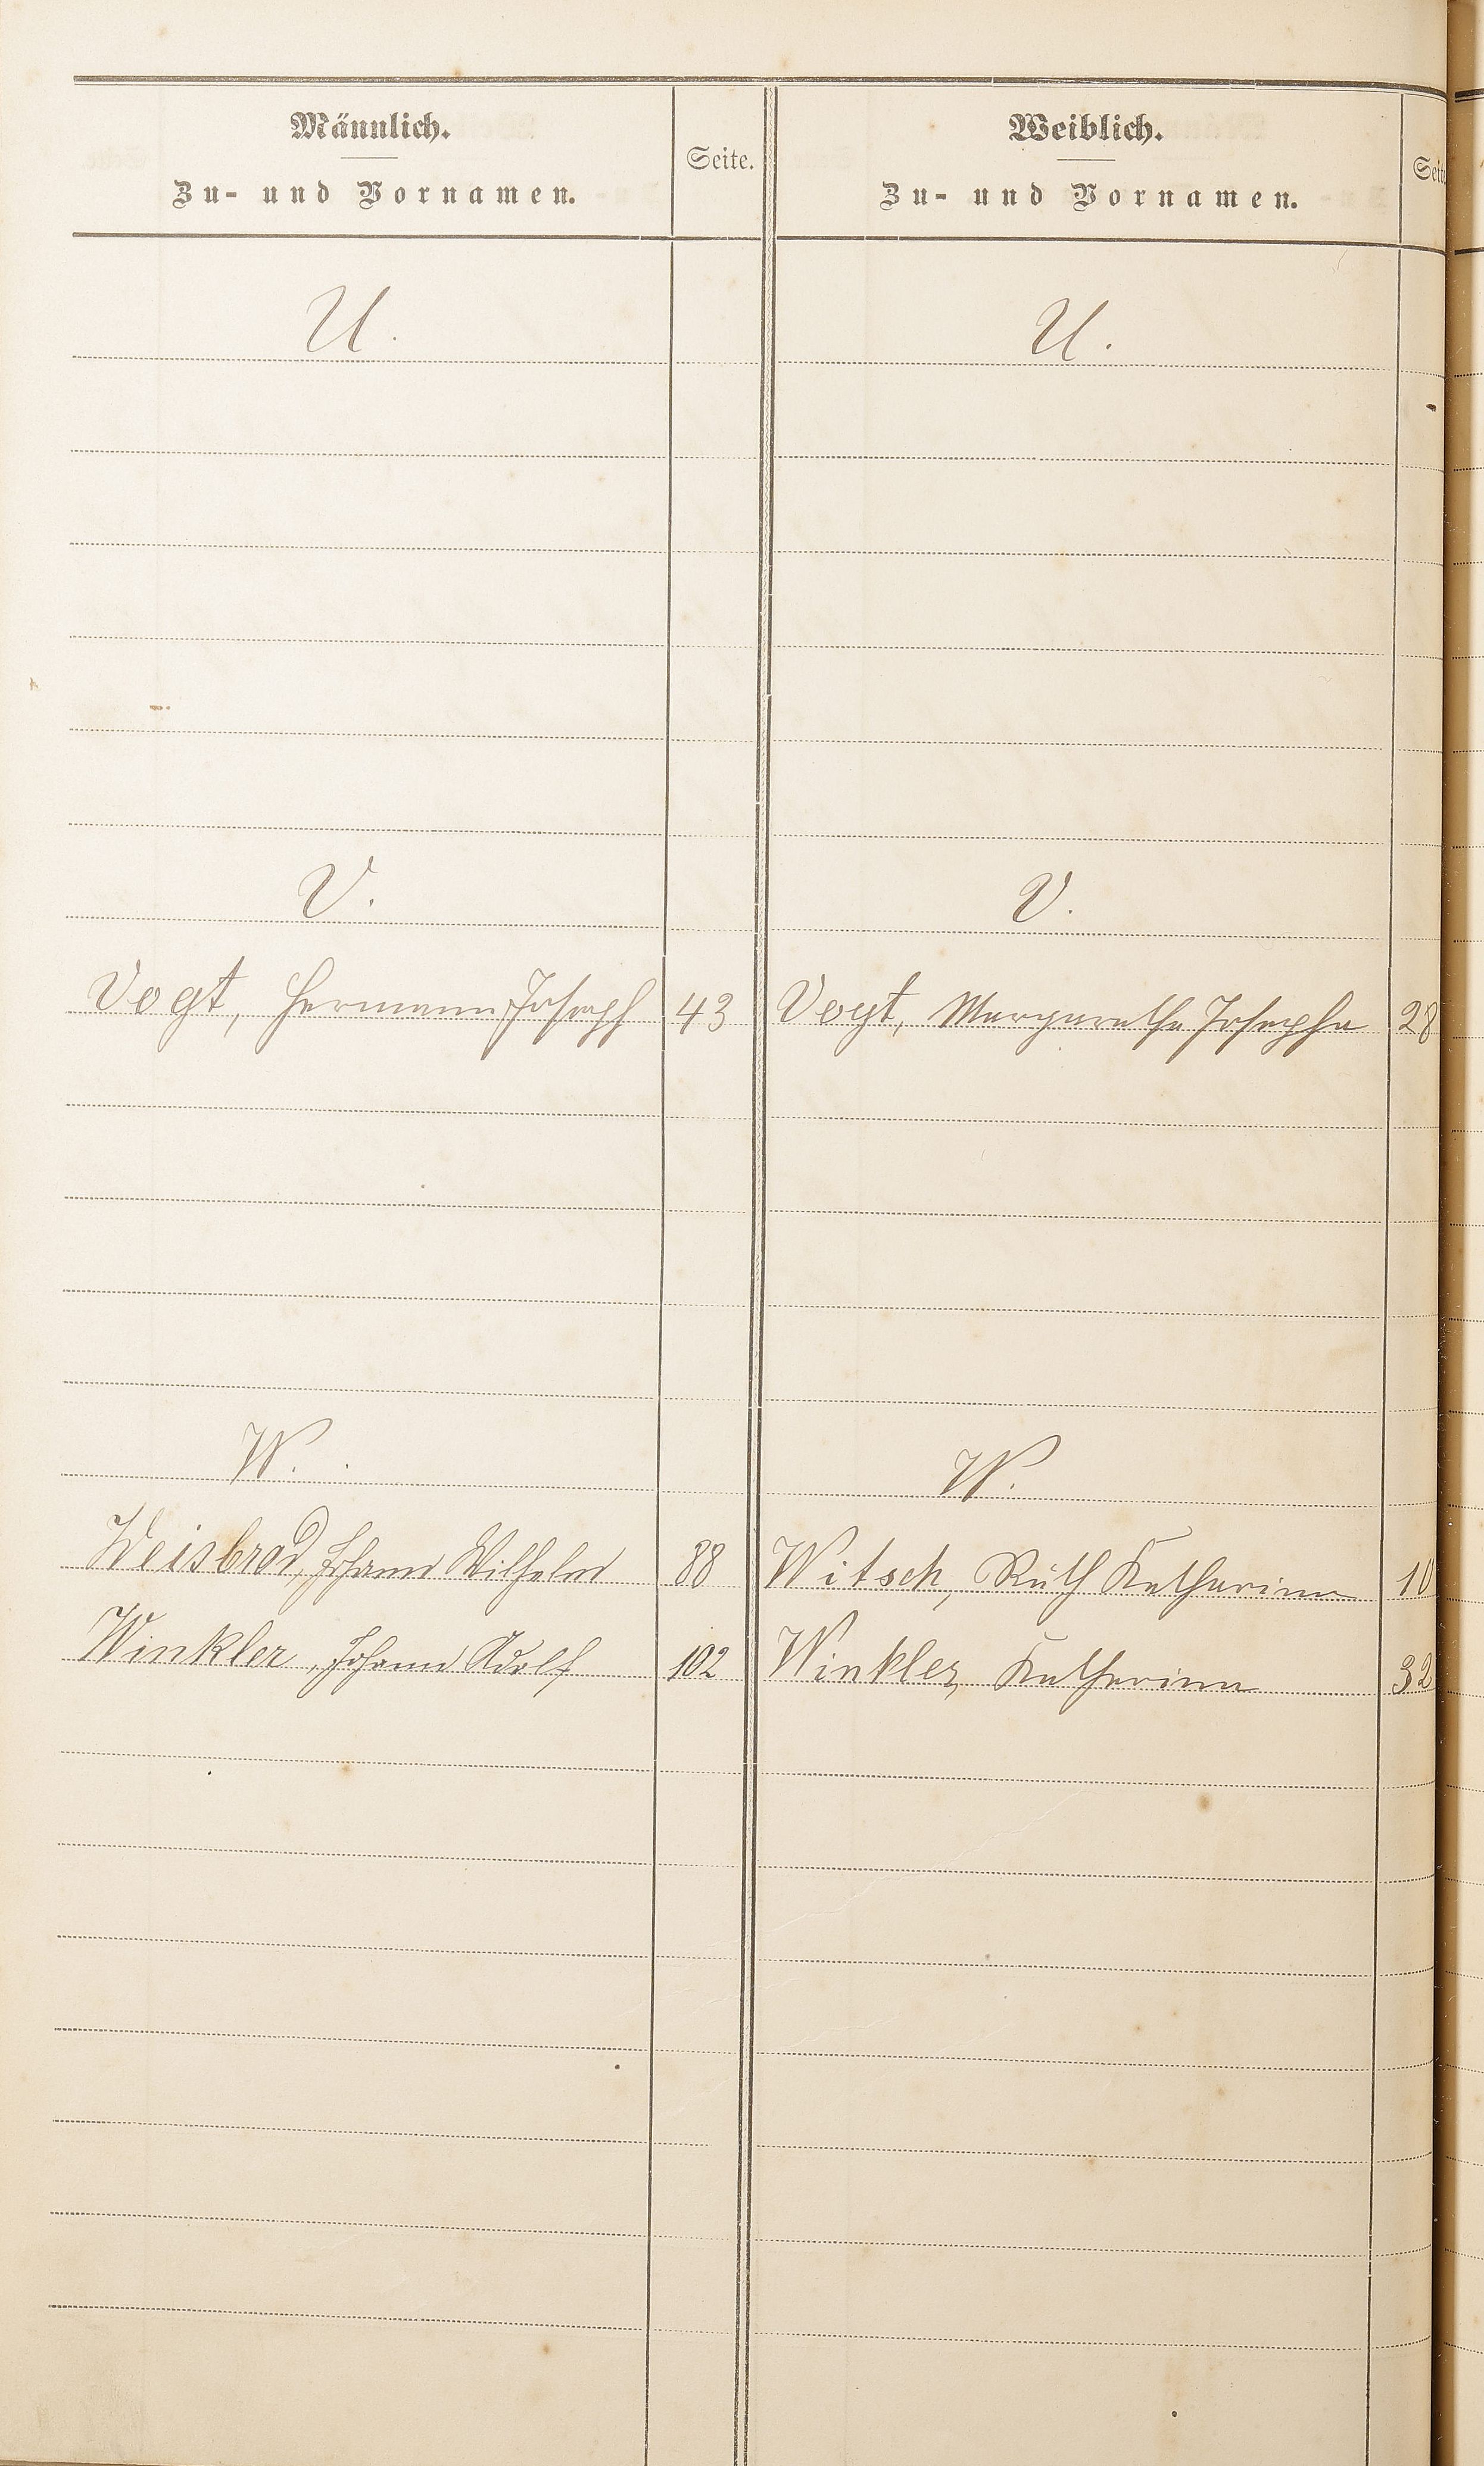 Männlich.
Zu- und Vornamen.
Seite.
Weiblich.
Zu- und Vornamen.
Seit
U.
U.
V.
V.
Vogt, Hermann Joseph 43
Vogt, Margarethe Josepha 28
W.
W.
Weisbrod, Johann Wilhelm 88
Witsch, Ruth Katharina 10
Winkler, Johann Adolf 102
Winkler, Katharina 32